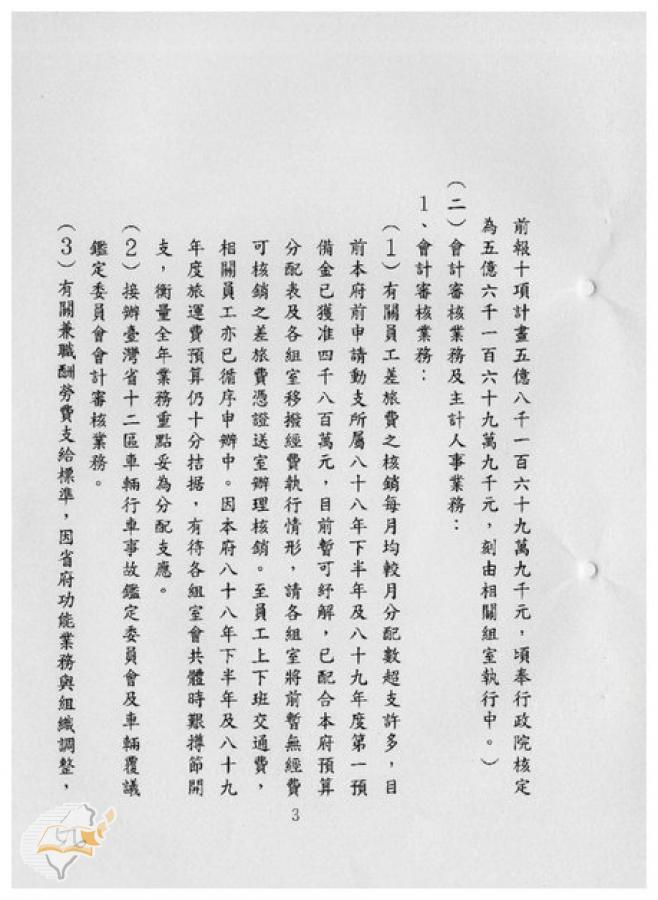 前報十項計畫五億八千一百六十九萬九千元，頃奉行政院核定
為五億六千一百六十九萬九千元，刻由相關組室執行中。）
（二）會計審核業務及主計人事業務：
1、會計審核業務：
（1）有關員工差旅費之核銷每月均較月分配數超支許多，目
前本府前申請動支所屬八十八年下半年及八十九年度第一預
備金已獲准四千八百萬元，目前暫可紓解，已配合本府預算
分配表及各組室移撥經費執行情形，請各組室將前暫無經費
可核銷之差旅費憑證送室辦理核銷。至員工上下班交通費，
相關員工亦已循序申辦中。因本府八十八年下半年及八十九
年度旅運費預算仍十分拮据，有待各組室會共體時艱撙節開
支，衡量全年業務重點妥為分配支應。
（2）接辦臺灣省十二區車輛行車事故鑑定委員會及車輛覆議
鑑定委員會會計審核業務。
（3）有關兼職酬勞費支給標準，因省府功能業務與組織調整，
3